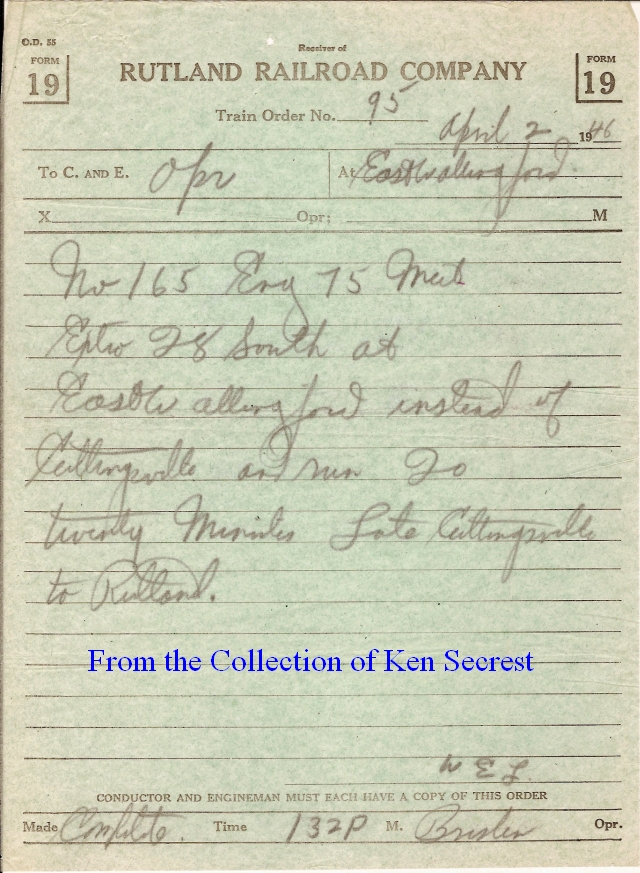 O.D. 55
Receiver of
FORM 19
RUTLAND RAILROAD COMPANY
FORM 19
Train Order No. 95
April 2 1946
To C. AND E. Opr At East Wallingford
X Opr; M
No 165 Eng 75 Meet
Extra 28 South at
East Wallingford instead of
Cuttingsville and run 20
twenty Minutes Late Cuttingsville
to Rutland.
From the Collection of Ken Secrest
W E L.
CONDUCTOR AND ENGINEMAN MUST EACH HAVE A COPY OF THIS ORDER
Made Complete Time 132P M. Opr.